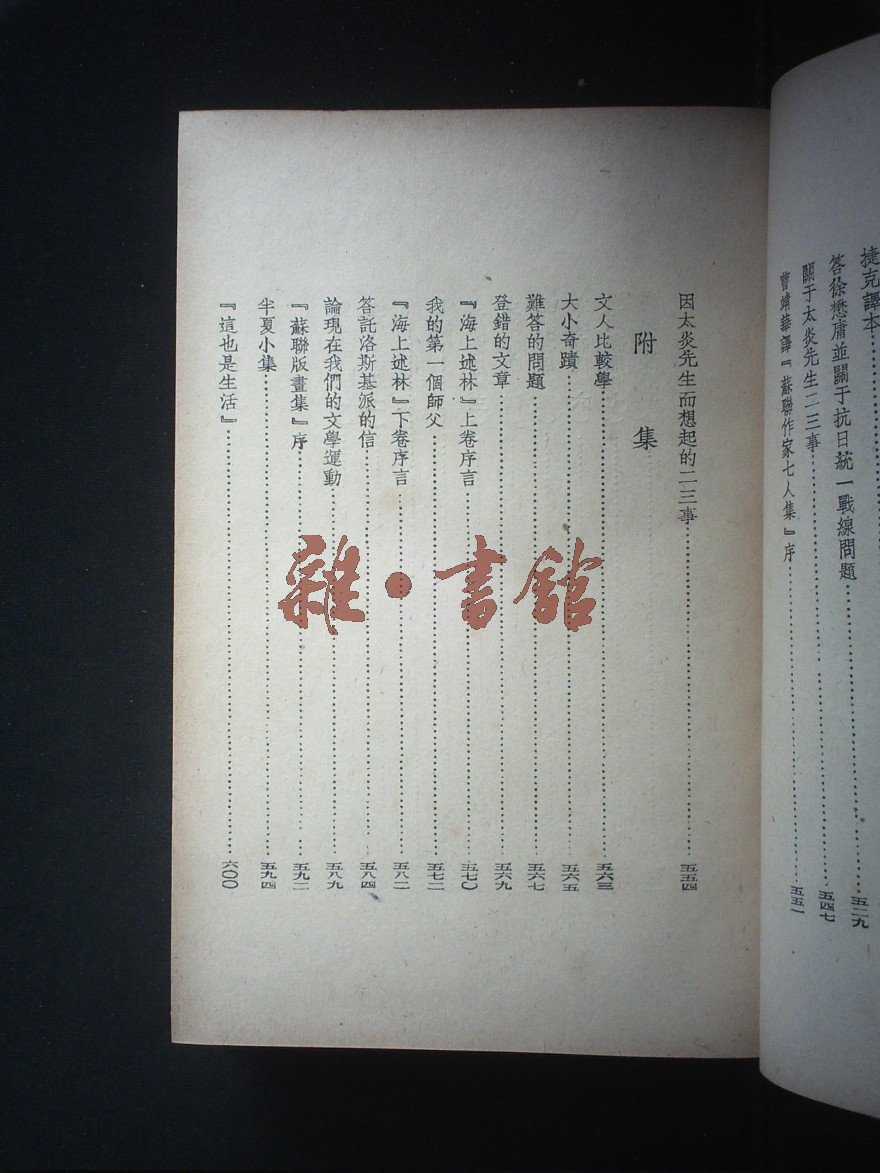 捷克譯本……五二九
答徐懋庸並關于抗日統一戰線問題……五四七
關于太炎先生二三事
曹靖華譯『蘇聯作家七人集』序……五五一
因太炎先生而想起的二三事……五五四
附集
文人比較學……五六三
大小奇蹟……五六五
難答的問題……五六七
登錯的文章……五六九
『海上述林』上卷序言……五七〇
我的第一個師父……五七二
『海上述林』下卷序言……五八二
答託洛斯基派的信……五八四
論現在我們的文學運動……五八九
『蘇聯版畫集』序……五九二
半夏小集……五九四
『這也是生活』……六〇〇
雜·書館